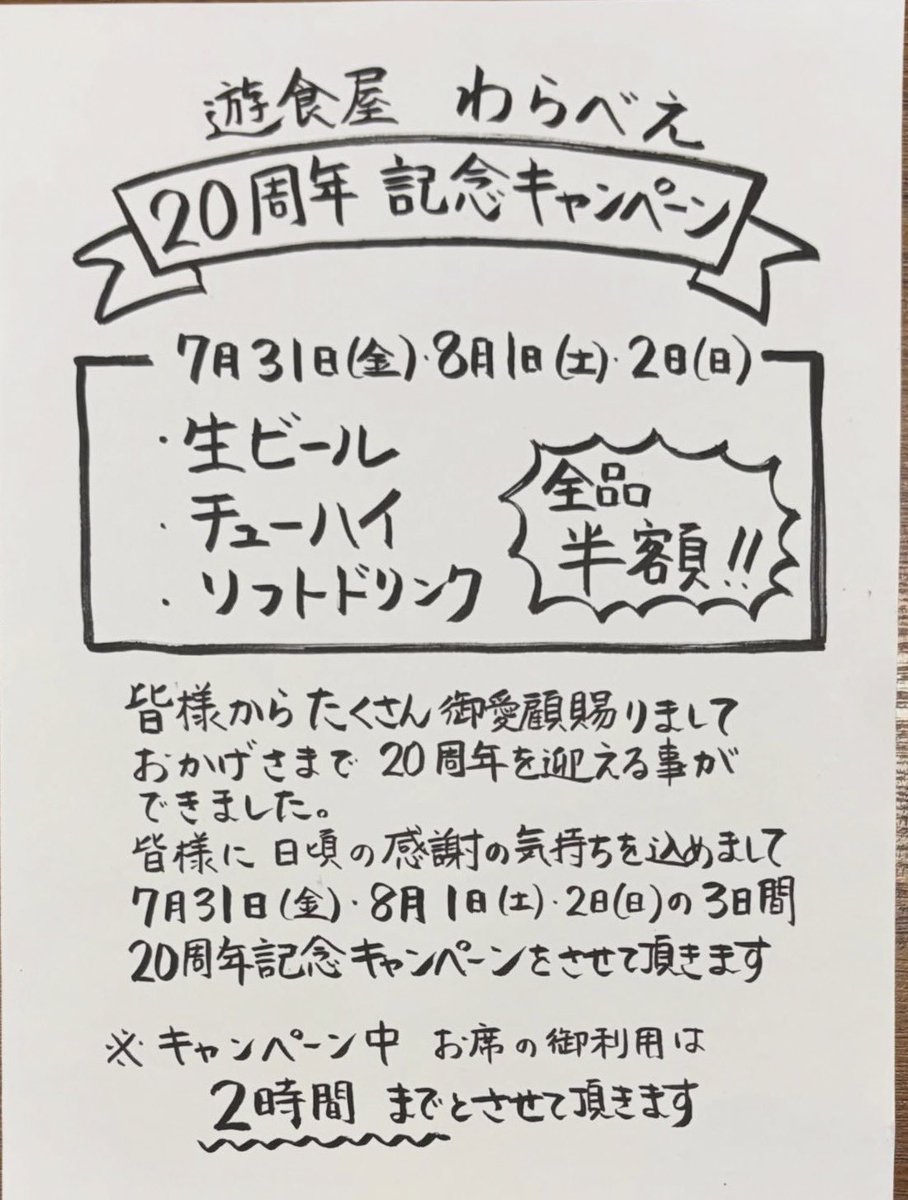 遊食屋 わらべえ
20周年 記念キャンペーン
7月31日(金)・8月1日(土)・2日(日)
・生ビール
・チューハイ
・ソフトドリンク
全品
半額!!
皆様からたくさん御愛顧賜りまして
おかげさまで 20周年を迎える事が
できました。
皆様に日頃の感謝の気持ちを込めまして
7月31日(金)・8月1日(土)・2日(日)の3日間
20周年記念キャンペーンをさせて頂きます
※キャンペーン中 お席の御利用は
2時間 までとさせて頂きます